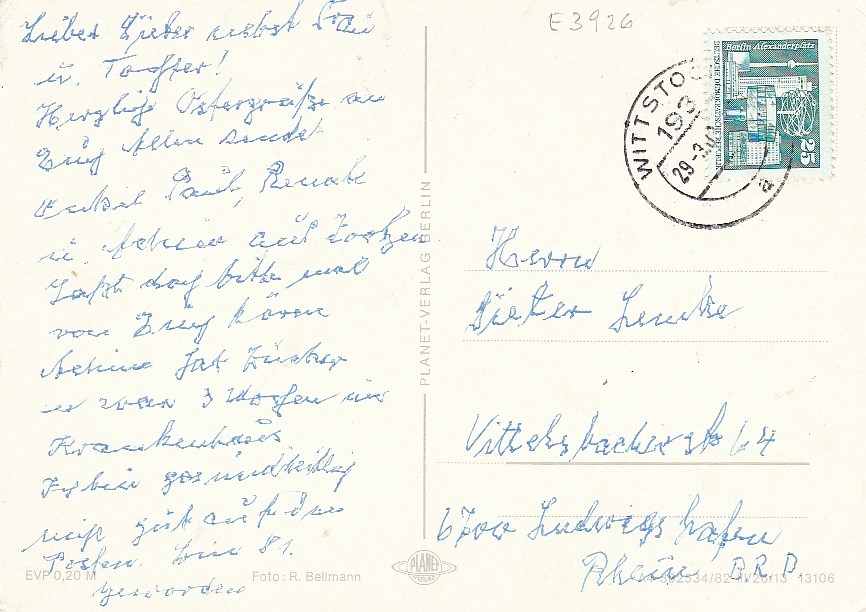 Lieber Dieter nebst Frau
u. Tochter!
Herzliche Ostergrüße an
Euch Allen sendet
Onkel Paul, Renate
u. Achim aus
Laßt doch bitte mal
von Euch hören
Achim hat Zucker
er war 3 Wochen im
Krankenhaus.
Ich bin gesundheitlich
nicht gut auf dem
Posten. bin 81.
geworden
EVP 0,20 M
Foto: R. Bellmann
PLANET-VERLAG BERLIN
PLANET
VERLAG
E3926
WITTSTOCK
193
29-3
a
Berlin, Alexanderplatz
DEUTSCHE DEMOKRATISCHE REPUBLIK
25
Herrn
Dieter Lemke
Wittelsbacherstr 64
6700 Ludwigshafen
Rhein BRD
13106